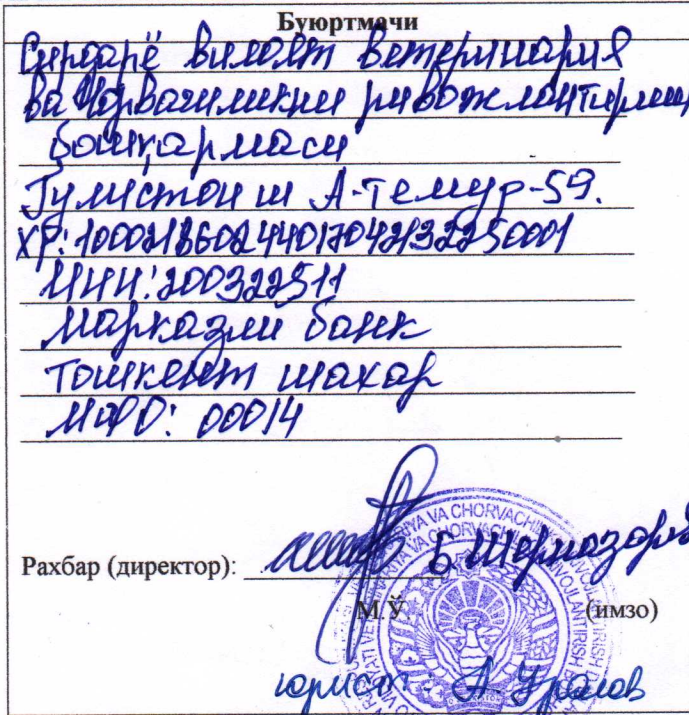 Буюртмачи
Сирдарё вилоят ветеринария
ва Чорвачиликни ривожлантириш
бошқармаси
Гулистон ш А-Темур-59.
ХР: 100021860244017042132250001
ИНН: 200322511
Марказли банк
Тошкент шахар
МФО: 00014
Рахбар (директор): Б Шермазоров
М.Ў (имзо)
юрист: А. Уралов